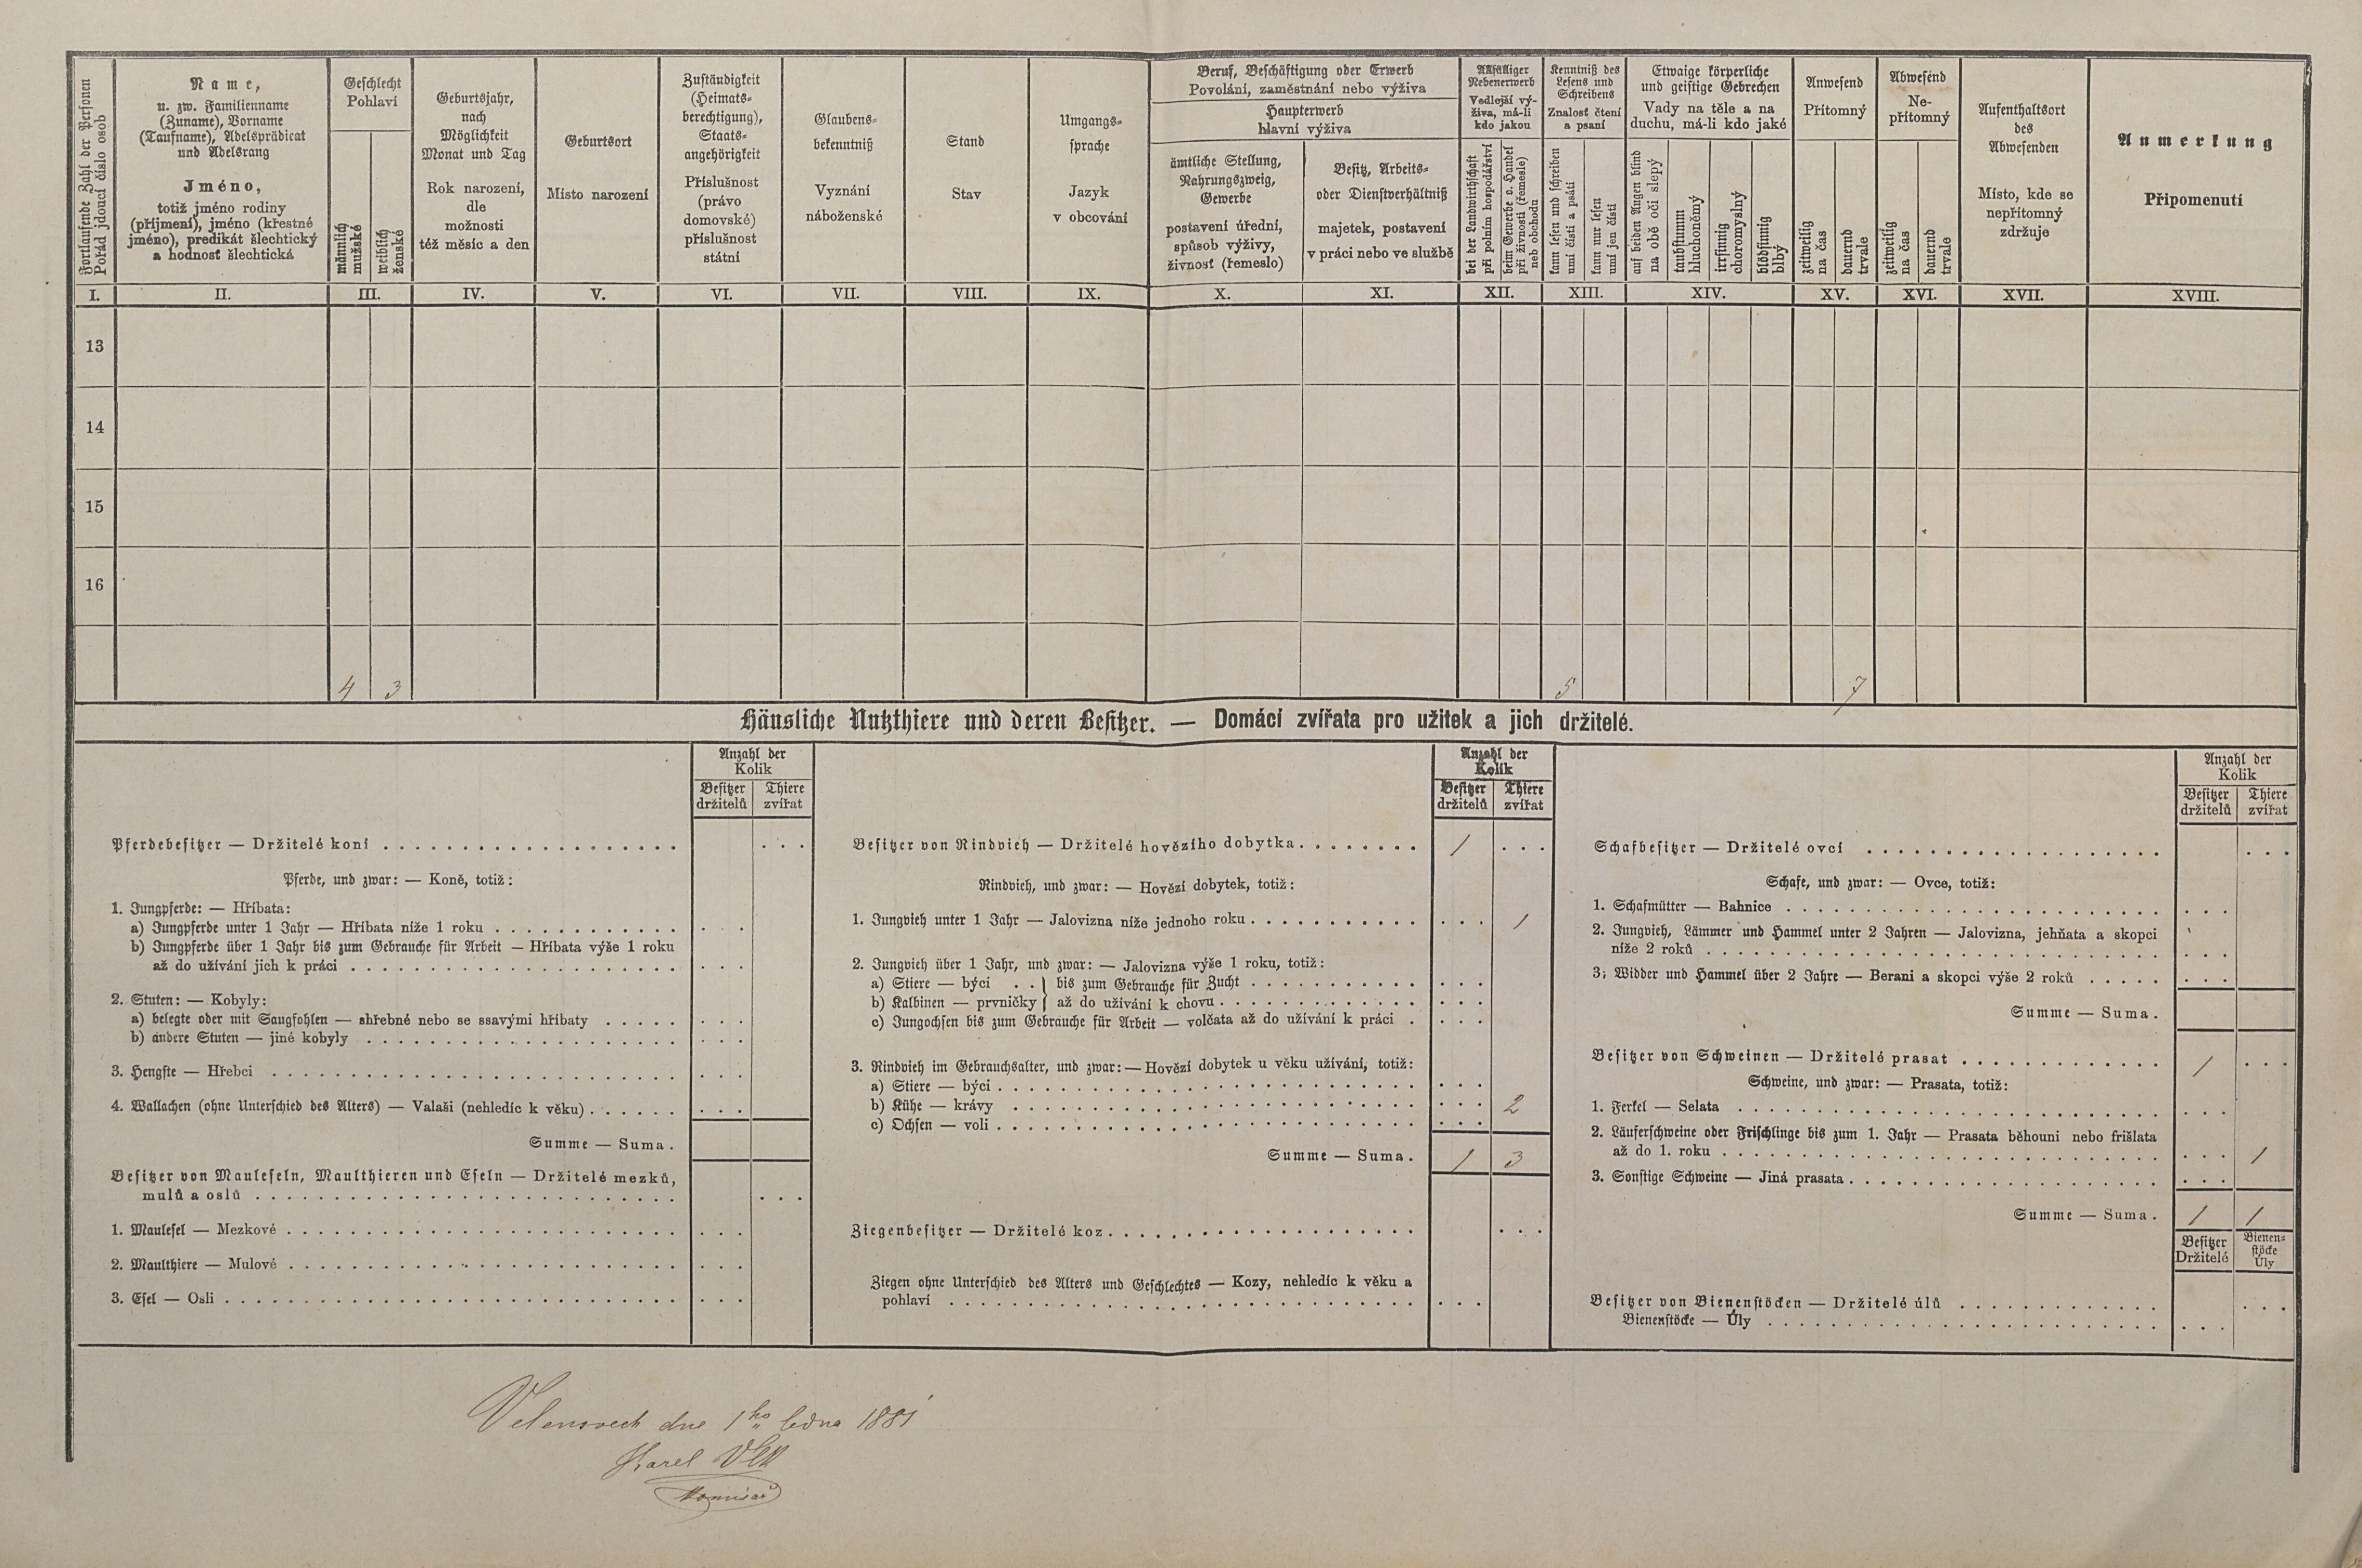 Fortlaufende Zahl der Personen
Pořád jdoucí číslo osob
Name,
u. zw. Familienname
(Zuname), Vorname
(Taufname), Adelsprädicat
und Adelsrang
Jméno,
totiž jméno rodiny
(příjmení), jméno (křestné
jméno), predikát šlechtický
a hodnost šlechtická
Geschlecht
Pohlaví
männlich
mužské
weiblich
ženské
Geburtsjahr,
nach
Möglichkeit
Monat und Tag
Rok narození,
dle
možnosti
též měsíc a den
Geburtsort
Místo narození
Zuständigkeit
(Heimats-
berechtigung),
Staats-
angehörigkeit
Příslušnost
(právo
domovské)
příslušnost
státní
Glaubens-
bekenntniß
Vyznání
náboženské
Stand
Stav
Umgangs-
sprache
Jazyk
v obcování
Beruf, Beschäftigung oder Erwerb
Povolání, zaměstnání nebo výživa
Haupterwerb
hlavní výživa
ämtliche Stellung,
Nahrungszweig,
Gewerbe
postavení úřední,
spůsob výživy,
živnosť (řemeslo)
Besitz, Arbeits-
oder Dienstverhältniß
majetek, postavení
v práci nebo ve službě
Allfälliger
Nebenerwerb
Vedlejší vý-
živa, má-li
kdo jakou
bei der Landwirthschaft
při polním hospodářství
beim Gewerbe o. Handel
při živnosti (řemesle)
neb obchodu
Kenntniß des
Lesens und
Schreibens
Znalosť čtení
a psaní
kann lesen und schreiben
umí čísti a psáti
kann nur lesen
umí jen čísti
Etwaige körperliche
und geistige Gebrechen
Vady na těle a na
duchu, má-li kdo jaké
auf beiden Augen blind
na obě oči slepý
taubstumm
hluchoněmý
irrsinnig
choromyslný
blödsinnig
blbý
Anwesend
Přítomný
zeitweilig
na čas
dauernd
trvale
Abwesend
Ne-
přítomný
zeitweilig
na čas
dauernd
trvale
Aufenthaltsort
des
Abwesenden
Místo, kde se
nepřítomný
zdržuje
Anmerkung
Připomenutí
I. II. III. IV. V. VI. VII. VIII. IX. X. XI. XII. XIII. XIV. XV. XVI. XVII. XVIII.
13
14
15
16
4 3 5 7
Häusliche Nutzthiere und deren Besitzer. — Domácí zvířata pro užitek a jich držitelé.
Anzahl der
Kolik
Besitzer Thiere
držitelů zvířat
Pferdebesitzer — Držitelé koní
Pferde, und zwar: — Koně, totiž:
1. Jungpferde: — Hříbata:
a) Jungpferde unter 1 Jahr — Hříbata níže 1 roku
b) Jungpferde über 1 Jahr bis zum Gebrauche für Arbeit — Hříbata výše 1 roku
až do užívání jich k práci
2. Stuten: — Kobyly:
a) belegte oder mit Saugfohlen — shřebné nebo se ssavými hříbaty
b) andere Stuten — jiné kobyly
3. Hengste — Hřebci
4. Wallachen (ohne Unterschied des Alters) — Valaši (nehledíc k věku)
Summe — Suma.
Besitzer von Mauleseln, Maulthieren und Eseln — Držitelé mezků,
mulů a oslů
1. Maulesel — Mezkové
2. Maulthiere — Mulové
3. Esel — Osli
Anzahl der
Kolik
Besitzer Thiere
držitelů zvířat
Besitzer von Rindvieh — Držitelé hovězího dobytka 1
Rindvieh, und zwar: — Hovězí dobytek, totiž:
1. Jungvieh unter 1 Jahr — Jalovizna níže jednoho roku 1
2. Jungvieh über 1 Jahr, und zwar: — Jalovizna výše 1 roku, totiž:
a) Stiere — býci . . } bis zum Gebrauche für Zucht
b) Kalbinen — prvničky } až do užívání k chovu
c) Jungochsen bis zum Gebrauche für Arbeit — volčata až do užívání k práci
3. Rindvieh im Gebrauchsalter, und zwar: — Hovězí dobytek u věku užívání, totiž:
a) Stiere — býci
b) Kühe — krávy 2
c) Ochsen — voli
Summe — Suma. 1 3
Ziegenbesitzer — Držitelé koz
Ziegen ohne Unterschied des Alters und Geschlechtes — Kozy, nehledíc k věku a
pohlaví
Anzahl der
Kolik
Besitzer Thiere
držitelů zvířat
Schafbesitzer — Držitelé ovcí
Schafe, und zwar: — Ovce, totiž:
1. Schafmütter — Bahnice
2. Jungvieh, Lämmer und Hammel unter 2 Jahren — Jalovizna, jehňata a skopci
níže 2 roků
3. Widder und Hammel über 2 Jahre — Berani a skopci výše 2 roků
Summe — Suma.
Besitzer von Schweinen — Držitelé prasat 1
Schweine, und zwar: — Prasata, totiž:
1. Ferkel — Selata
2. Läuferschweine oder Frischlinge bis zum 1. Jahr — Prasata běhouni nebo frišlata
až do 1. roku 1
3. Sonstige Schweine — Jiná prasata
Summe — Suma. 1 1
Besitzer Bienen-
stöcke
Držitelé Úly
Besitzer von Bienenstöcken — Držitelé úlů
Bienenstöcke — Úly
dne 1ho ledna 1881
Karel Vlk
Komisař